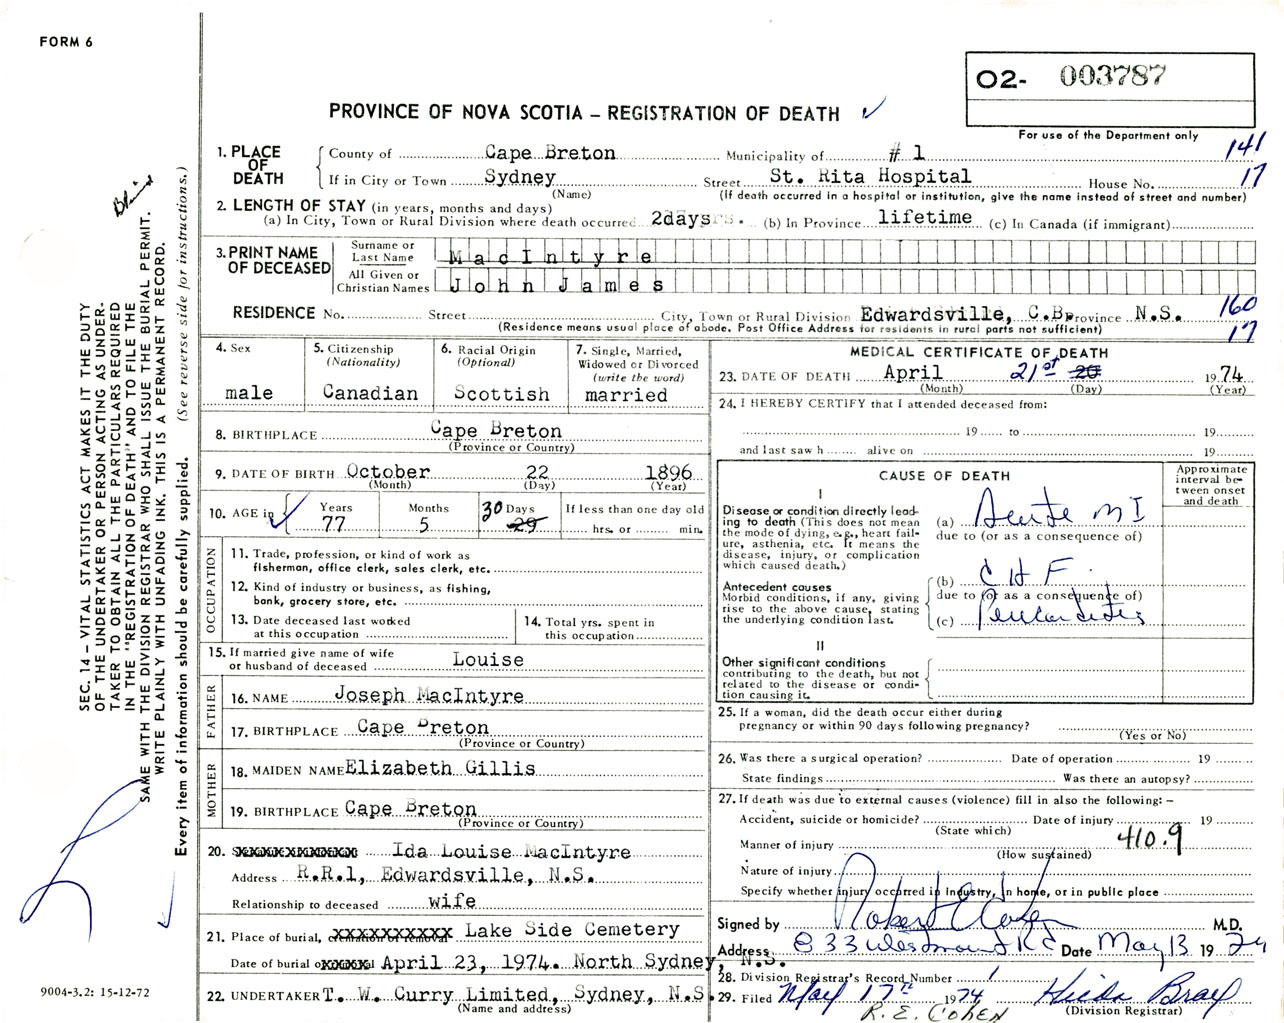 FORM 6
02- 003787
PROVINCE OF NOVA SCOTIA – REGISTRATION OF DEATH ✓
For use of the Department only
1. PLACE OF DEATH
County of Cape Breton Municipality of # 1 141
If in City or Town Sydney Street St. Rita Hospital House No. 17
(Name) (If death occurred in a hospital or institution, give the name instead of street and number)
2. LENGTH OF STAY (in years, months and days)
(a) In City, Town or Rural Division where death occurred 2days (b) In Province lifetime (c) In Canada (if immigrant)
3. PRINT NAME OF DECEASED
Surname or Last Name MacIntyre
All Given or Christian Names John James
RESIDENCE No. Street City, Town or Rural Division Edwardsville, C.B. Province N.S. 160
(Residence means usual place of abode. Post Office Address for residents in rural parts not sufficient) 17
4. Sex
male
5. Citizenship
(Nationality)
Canadian
6. Racial Origin
(Optional)
Scottish
7. Single, Married,
Widowed or Divorced
(write the word)
married
8. BIRTHPLACE Cape Breton
(Province or Country)
9. DATE OF BIRTH October 22 1896
(Month) (Day) (Year)
10. AGE in ✓ Years Months 30 Days If less than one day old
77 5 29 hrs. or min.
OCCUPATION
11. Trade, profession, or kind of work as
fisherman, office clerk, sales clerk, etc.
12. Kind of industry or business, as fishing,
bank, grocery store, etc.
13. Date deceased last worked
at this occupation
14. Total yrs. spent in
this occupation
15. If married give name of wife
or husband of deceased Louise
FATHER
16. NAME Joseph MacIntyre
17. BIRTHPLACE Cape Breton
(Province or Country)
MOTHER
18. MAIDEN NAME Elizabeth Gillis
19. BIRTHPLACE Cape Breton
(Province or Country)
20. Ida Louise MacIntyre
Address R.R.1, Edwardsville, N.S.
Relationship to deceased wife
21. Place of burial, cremation or removal Lake Side Cemetery
Date of burial April 23, 1974. North Sydney, N.S.
22. UNDERTAKER T. W. Curry Limited, Sydney, N.S.
(Name and address)
MEDICAL CERTIFICATE OF DEATH
23. DATE OF DEATH April 21st 20 1974
(Month) (Day) (Year)
24. I HEREBY CERTIFY that I attended deceased from:
19 to 19
and last saw h alive on 19
CAUSE OF DEATH
Approximate
interval be-
tween onset
and death
I
Disease or condition directly lead-
ing to death (This does not mean
the mode of dying, e.g., heart fail-
ure, asthenia, etc. It means the
disease, injury, or complication
which caused death.)
(a) Acute MI
due to (or as a consequence of)
Antecedent causes
Morbid conditions, if any, giving
rise to the above cause, stating
the underlying condition last.
(b) CHF.
due to (or as a consequence of)
(c) Pericarditis
II
Other significant conditions
contributing to the death, but not
related to the disease or condi-
tion causing it.
25. If a woman, did the death occur either during
pregnancy or within 90 days following pregnancy?
(Yes or No)
26. Was there a surgical operation? Date of operation 19
State findings Was there an autopsy?
27. If death was due to external causes (violence) fill in also the following: –
Accident, suicide or homicide? Date of injury 19
(State which)
Manner of injury 410.9
(How sustained)
Nature of injury
Specify whether injury occurred in Industry, in home, or in public place
Signed by Robert E Cohen M.D.
Address 833 Westmount Rd Date May 13 1974
28. Division Registrar's Record Number 1
29. Filed May 17th 1974 Hilda Bray
(Division Registrar)
R. E. COHEN
SEC. 14 – VITAL STATISTICS ACT MAKES IT THE DUTY
OF THE UNDERTAKER OR PERSON ACTING AS UNDER-
TAKER TO OBTAIN ALL THE PARTICULARS REQUIRED
IN THE "REGISTRATION OF DEATH" AND TO FILE THE
SAME WITH THE DIVISION REGISTRAR WHO SHALL ISSUE THE BURIAL PERMIT.
WRITE PLAINLY WITH UNFADING INK. THIS IS A PERMANENT RECORD.
Every item of information should be carefully supplied. (See reverse side for instructions.)
9004-3.2: 15-12-72